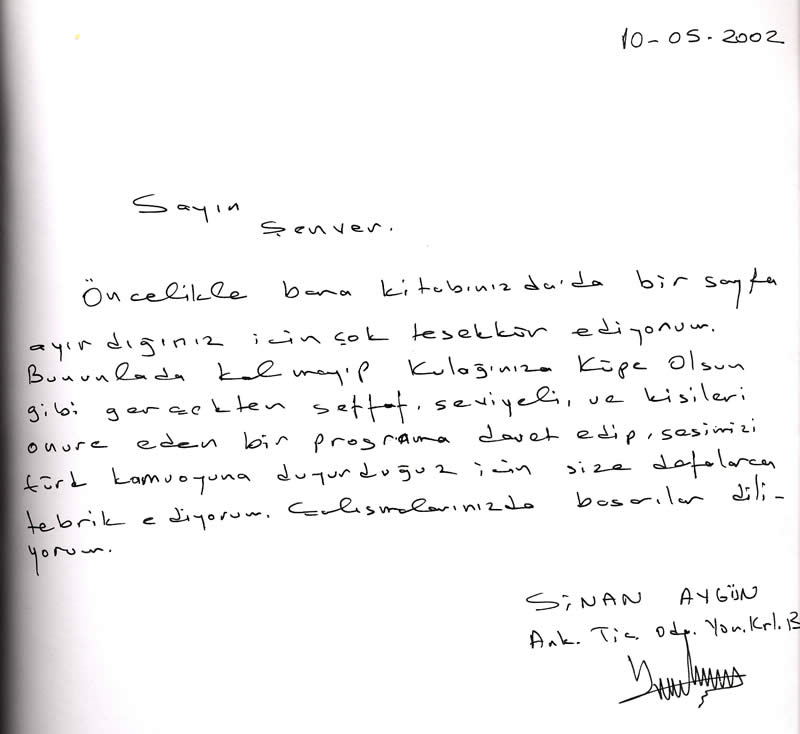 10-05-2002
Sayın
Şenver.
Öncelikle bana kitabınızda'da bir sayfa
ayırdığınız için çok teşekkür ediyorum.
Bununlada kalmayıp Kulağınıza Küpe Olsun
gibi gerçekten şeffaf, seviyeli, ve kişileri
onure eden bir programa davet edip, sesimizi
türk kamuoyuna duyurduğuz için size defalarca
tebrik ediyorum. Çalışmalarınızda başarılar dili-
yorum.
SİNAN AYGÜN
Ank. Tic. Od. Yön. Krl. B